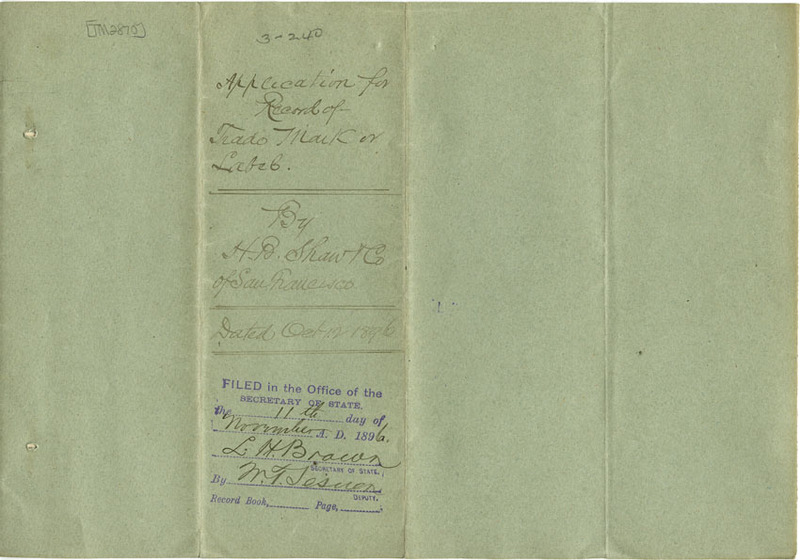 [TM2870]
3-240
Application for
Record of
Trade Mark or
Label.
By
H. B. Shaw & Co
of San Francisco
Dated Oct 12 1896
FILED in the Office of the
SECRETARY OF STATE,
the 11th day of
November A. D. 1896.
L. H. Brown
SECRETARY OF STATE.
By W. T.
DEPUTY.
Record Book, Page,